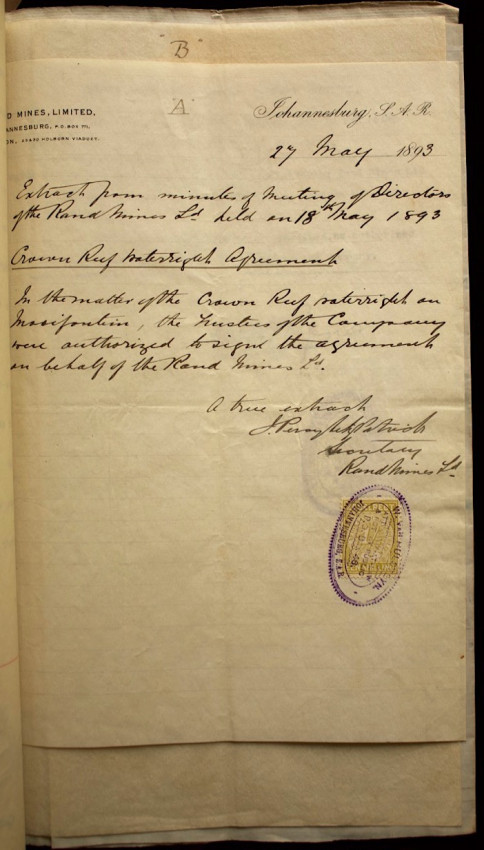 "B"
A
D MINES, LIMITED,
ANNESBURG, P.O. BOX 711,
ON, HOLBORN VIADUCT.
Johannesburg, S.A.R.
27 May 1893
Extract from minutes of Meeting of Directors
of the Rand Mines Ld held on 18th May 1893
Crown Reef Waterright Agreement
In the matter of the Crown Reef waterright on
the Trustees of the Company
were authorized to sign the agreement
on behalf of the Rand Mines Ld.
A true extract
J. Percy FitzPatrick
Secretary
Rand Mines Ld
JOHANNESBURG, Z.A.R.